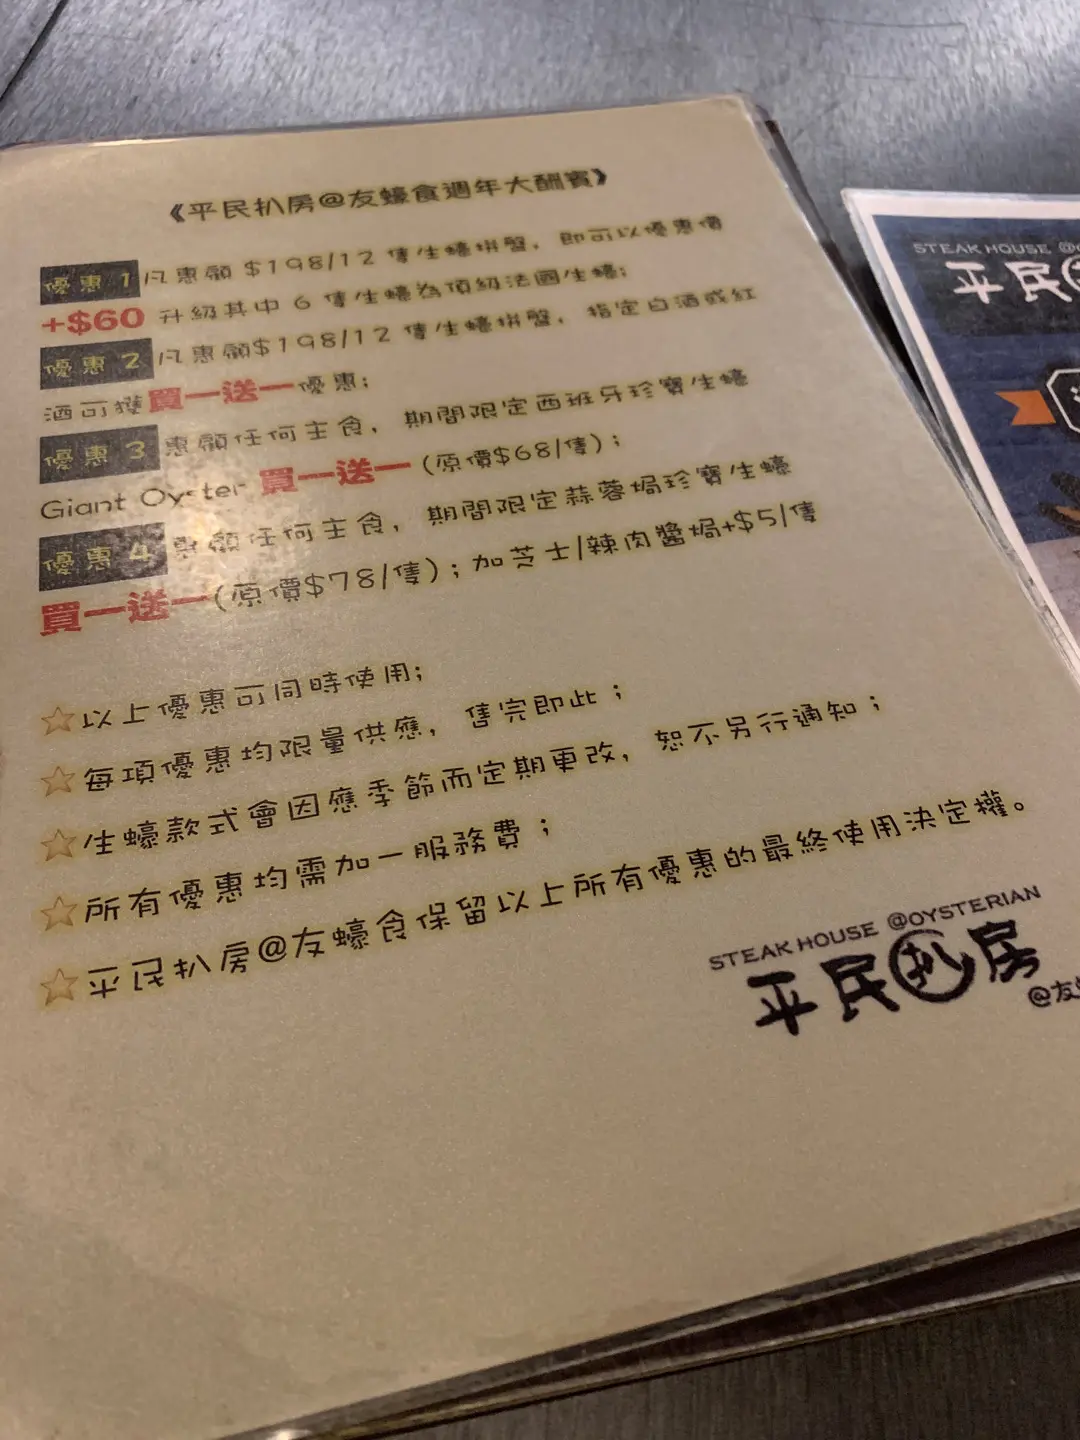 《平民扒房@友蠔食週年大酬賓》
優惠 1 凡惠顧 $198/12 隻生蠔拼盤，即可以優惠價
+$60 升級其中 6 隻生蠔為頂級法國生蠔;
優惠 2 凡惠顧$198/12 隻生蠔拼盤，指定白酒或紅
酒可獲買一送一優惠;
優惠 3 惠顧任何主食，期間限定西班牙珍寶生蠔
Giant Oyster 買一送一 (原價$68/隻);
優惠 4 惠顧任何主食，期間限定蒜蓉焗珍寶生蠔
買一送一(原價$78/隻)；加芝士/辣肉醬焗+$5/隻
☆以上優惠可同時使用;
☆每項優惠均限量供應，售完即止；
☆生蠔款式會因應季節而定期更改，恕不另行通知；
☆所有優惠均需加一服務費；
☆平民扒房@友蠔食保留以上所有優惠的最終使用決定權。
STEAK HOUSE @OYSTERIAN
平民扒房
@友
STEAK HOUSE @
平民